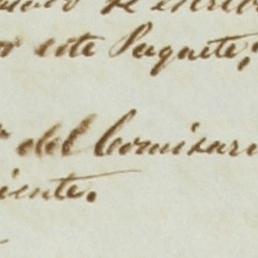 de escrib
este Paquete,
del Comisari
iente.